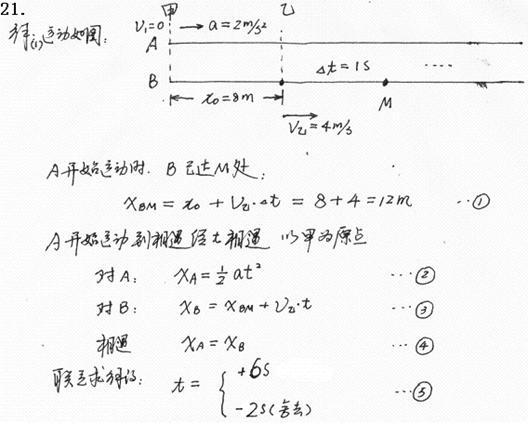 21.
甲 乙
V₁=0 → a=2m/s²
解(1)运动如图:
A
B Δt=1s ····
x₀=8m M
V乙=4m/s
A开始运动时, B已达M处:
X_BM = x₀ + V乙·Δt = 8+4=12m ··①
A开始运动到相遇经t相遇 以甲为原点
对A: X_A=½at² ···②
对B: X_B = X_BM+V乙·t ···③
相遇 X_A = X_B ···④
联立求解得: t = { +6s
-2s(舍去) ···⑤